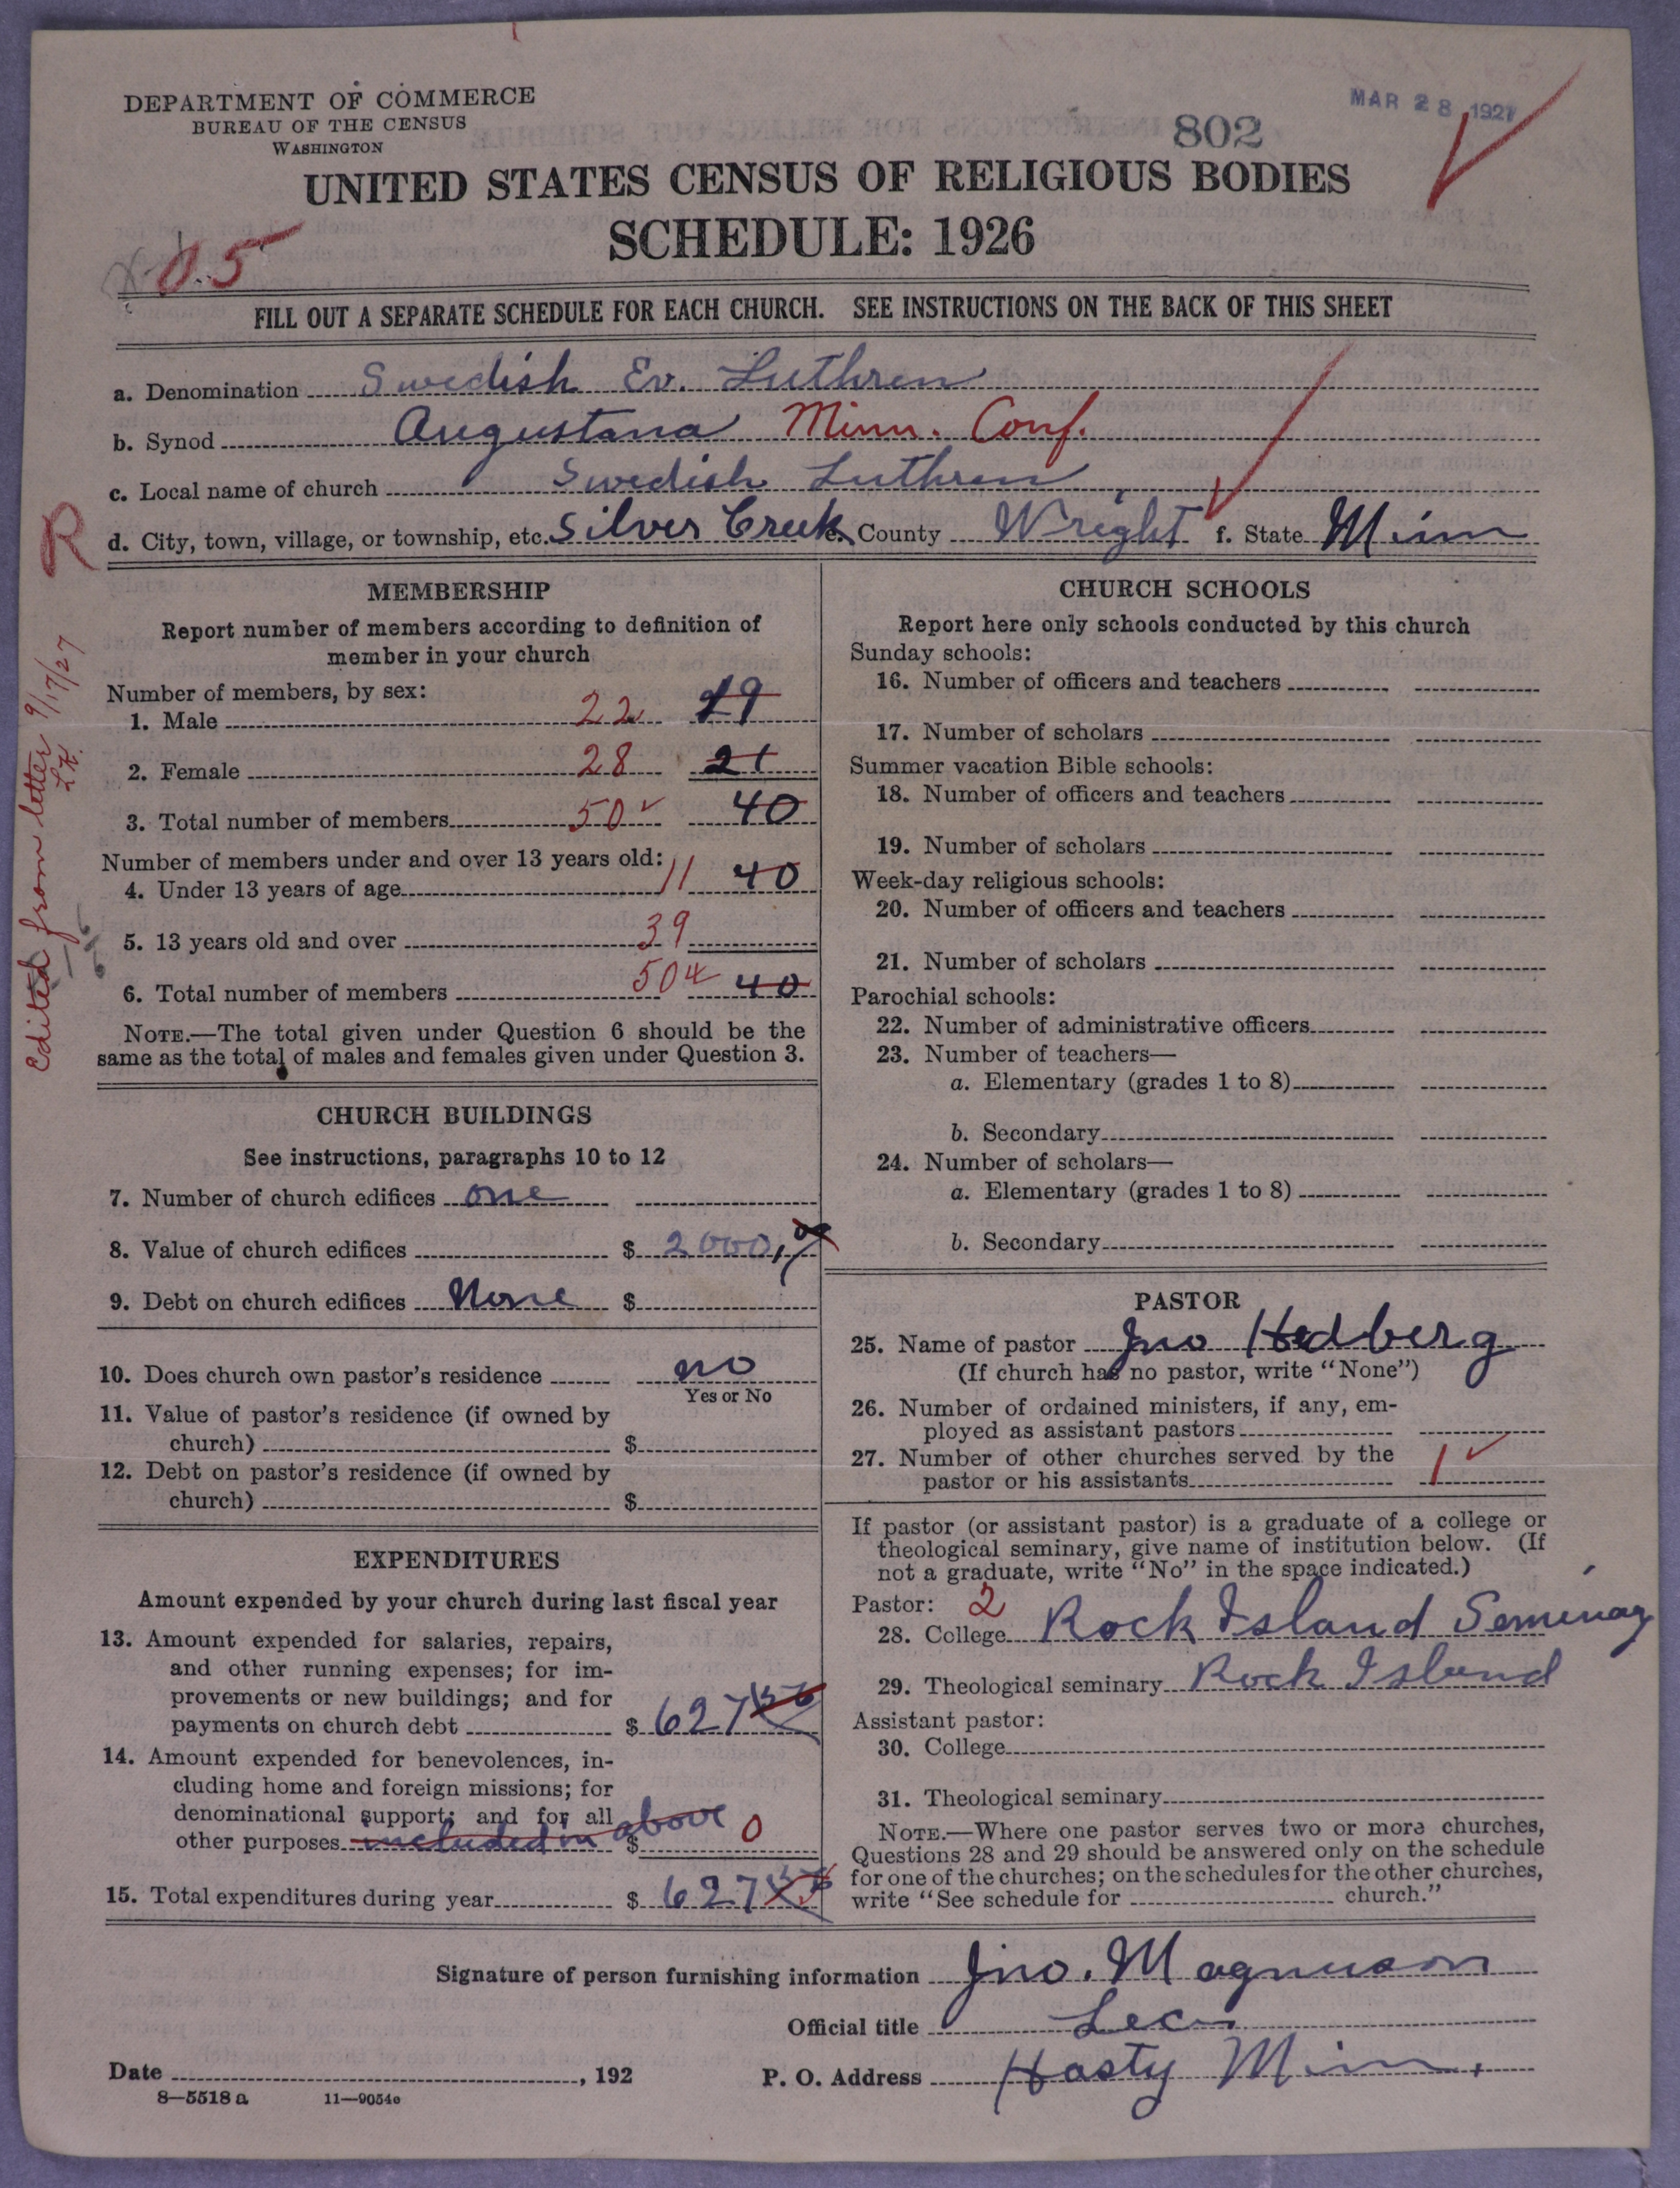 DEPARTMENT OF COMMERCE
BUREAU OF THE CENSUS
WASHINGTON
802
MAR 28 1927
UNITED STATES CENSUS OF RELIGIOUS BODIES
SCHEDULE: 1926
0.5
FILL OUT A SEPARATE SCHEDULE FOR EACH CHURCH. SEE INSTRUCTIONS ON THE BACK OF THIS SHEET
a. Denomination Swedish Ev. Luthren
b. Synod Augustana Minn. Conf.
c. Local name of church Swedish Luthren
d. City, town, village, or township, etc. Silver Creek e. County Wright f. State Minn
R
Edited from letter 9/17/27
L.K.
MEMBERSHIP
Report number of members according to definition of
member in your church
Number of members, by sex:
1. Male 22 19
2. Female 28 21
3. Total number of members 50 40
Number of members under and over 13 years old:
4. Under 13 years of age 11 40
5. 13 years old and over 39
6. Total number of members 50 40
NOTE.—The total given under Question 6 should be the
same as the total of males and females given under Question 3.
CHURCH BUILDINGS
See instructions, paragraphs 10 to 12
7. Number of church edifices one
8. Value of church edifices $ 2000,
9. Debt on church edifices None $
10. Does church own pastor's residence no
Yes or No
11. Value of pastor's residence (if owned by
church) $
12. Debt on pastor's residence (if owned by
church) $
EXPENDITURES
Amount expended by your church during last fiscal year
13. Amount expended for salaries, repairs,
and other running expenses; for im-
provements or new buildings; and for
payments on church debt $ 627
14. Amount expended for benevolences, in-
cluding home and foreign missions; for
denominational support; and for all
other purposes included in above $ 0
15. Total expenditures during year $ 627
CHURCH SCHOOLS
Report here only schools conducted by this church
Sunday schools:
16. Number of officers and teachers
17. Number of scholars
Summer vacation Bible schools:
18. Number of officers and teachers
19. Number of scholars
Week-day religious schools:
20. Number of officers and teachers
21. Number of scholars
Parochial schools:
22. Number of administrative officers
23. Number of teachers—
a. Elementary (grades 1 to 8)
b. Secondary
24. Number of scholars—
a. Elementary (grades 1 to 8)
b. Secondary
PASTOR
25. Name of pastor Jno Hedberg
(If church has no pastor, write "None")
26. Number of ordained ministers, if any, em-
ployed as assistant pastors
27. Number of other churches served by the
pastor or his assistants 1
If pastor (or assistant pastor) is a graduate of a college or
theological seminary, give name of institution below. (If
not a graduate, write "No" in the space indicated.)
Pastor: 2
28. College Rock Island Seminary
29. Theological seminary Rock Island
Assistant pastor:
30. College
31. Theological seminary
NOTE.—Where one pastor serves two or more churches,
Questions 28 and 29 should be answered only on the schedule
for one of the churches; on the schedules for the other churches,
write "See schedule for church."
Signature of person furnishing information Jno. Magnuson
Official title Sec
Date , 192 P. O. Address Hasty Minn.
8—5518 a 11—9054e